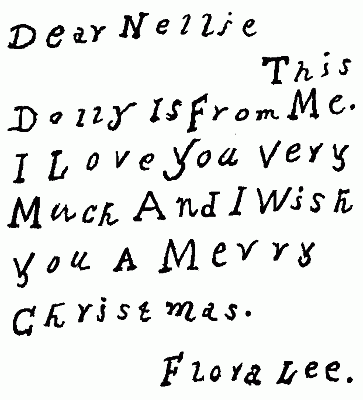 Dear Nellie
This
Dolly Is From Me.
I Love You Very
Much And I Wish
You A Merry
Christmas.
Flora Lee.